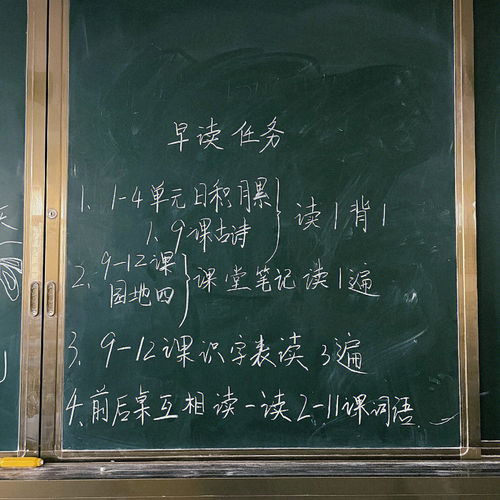 早读任务
1、1-4单元日积月累
1、9课古诗
}读1背1
2、9-12课
园地四
}课堂笔记读1遍
3、9-12课识字表读3遍
4、前后桌互相读一读2-11课词语